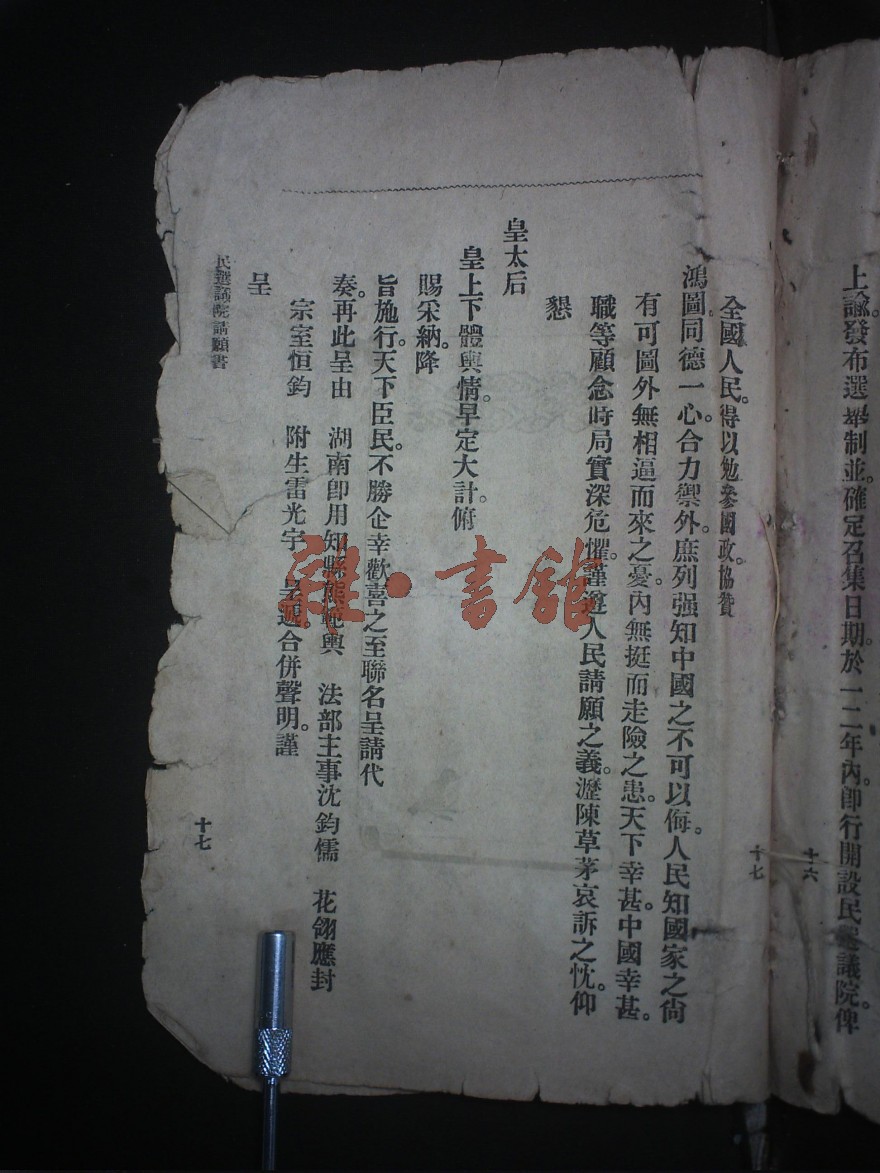 上諭。發布選舉制並。確定召集日期。於一二年內。即行開設民選議院。俾
十六
十七
全國人民。得以勉參國政。協贊
鴻圖。同德一心。合力禦外。庶列强知中國之不可以侮。人民知國家之尙
有可圖。外無相逼而來之憂。內無挺而走險之患。天下幸甚。中國幸甚。
職等顧念時局。實深危懼。謹遵人民請願之義。瀝陳草茅哀訴之忱。仰
懇
皇太后
皇上下體輿情。早定大計。俯
賜采納。降
旨施行。天下臣民。不勝企幸歡喜之至聯名呈請代
奏。再此呈由 湖南卽用知縣熊範輿 法部主事沈鈞儒 花翎應封
宗室恒鈞 附生雷光宇 呈遞。合併聲明。謹
呈
民選議院請願書
十七
雜·書館